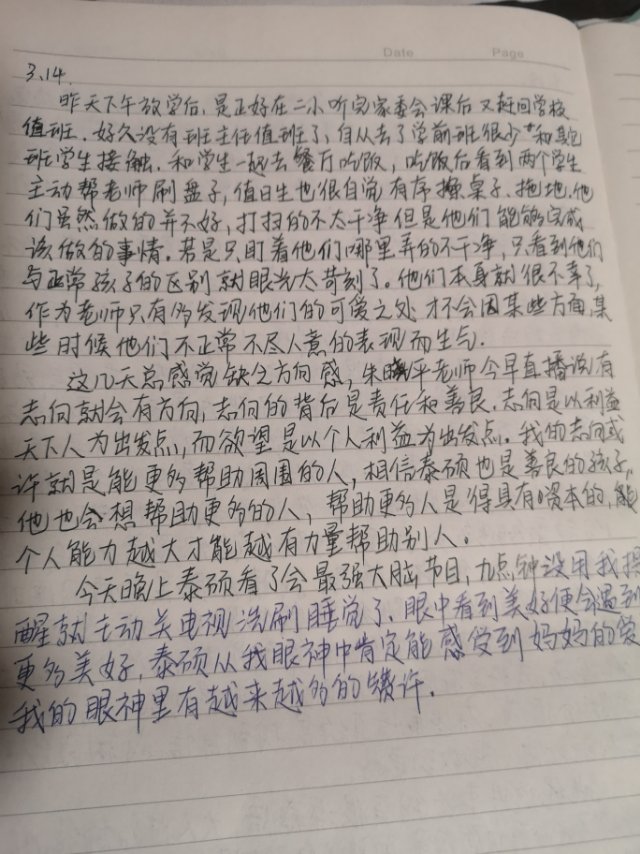 Date Page
3.14.
昨天下午放学后,是正好在二小听完家委会课后又赶回学校
值班.好久没有班主任值班了,自从去了学前班很少和其它
班学生接触.和学生一起去餐厅吃饭,吃饭后看到两个学生
主动帮老师刷盘子,值日生也很自觉有序擦桌子.拖地.他
们虽然做的并不好,打扫的不太干净但是他们能够完成
该做的事情.若是只盯着他们哪里弄的不干净,只看到他们
与正常孩子的区别就眼光太苛刻了.他们本身就很不幸了,
作为老师只有多发现他们的可爱之处才不会因某些方面,某
些时候他们不正常不尽人意的表现而生气.
这几天总感觉缺乏方向感,朱晓平老师今早直播说有
志向就会有方向,志向的背后是责任和善良.志向是以利益
天下人为出发点,而欲望是以个人利益为出发点。我的志向或
许就是能更多帮助周围的人,相信泰硕也是善良的孩子,
他也会想帮助更多的人,帮助更多人是得具有资本的,能
个人能力越大才能越有力量帮助别人。
今天晚上泰硕看了会最强大脑节目,九点钟没用我提
醒就主动关电视洗刷睡觉了.眼中看到美好便会遇到
更多美好.泰硕从我眼神中肯定能感受到妈妈的爱
我的眼神里有越来越多的赞许.